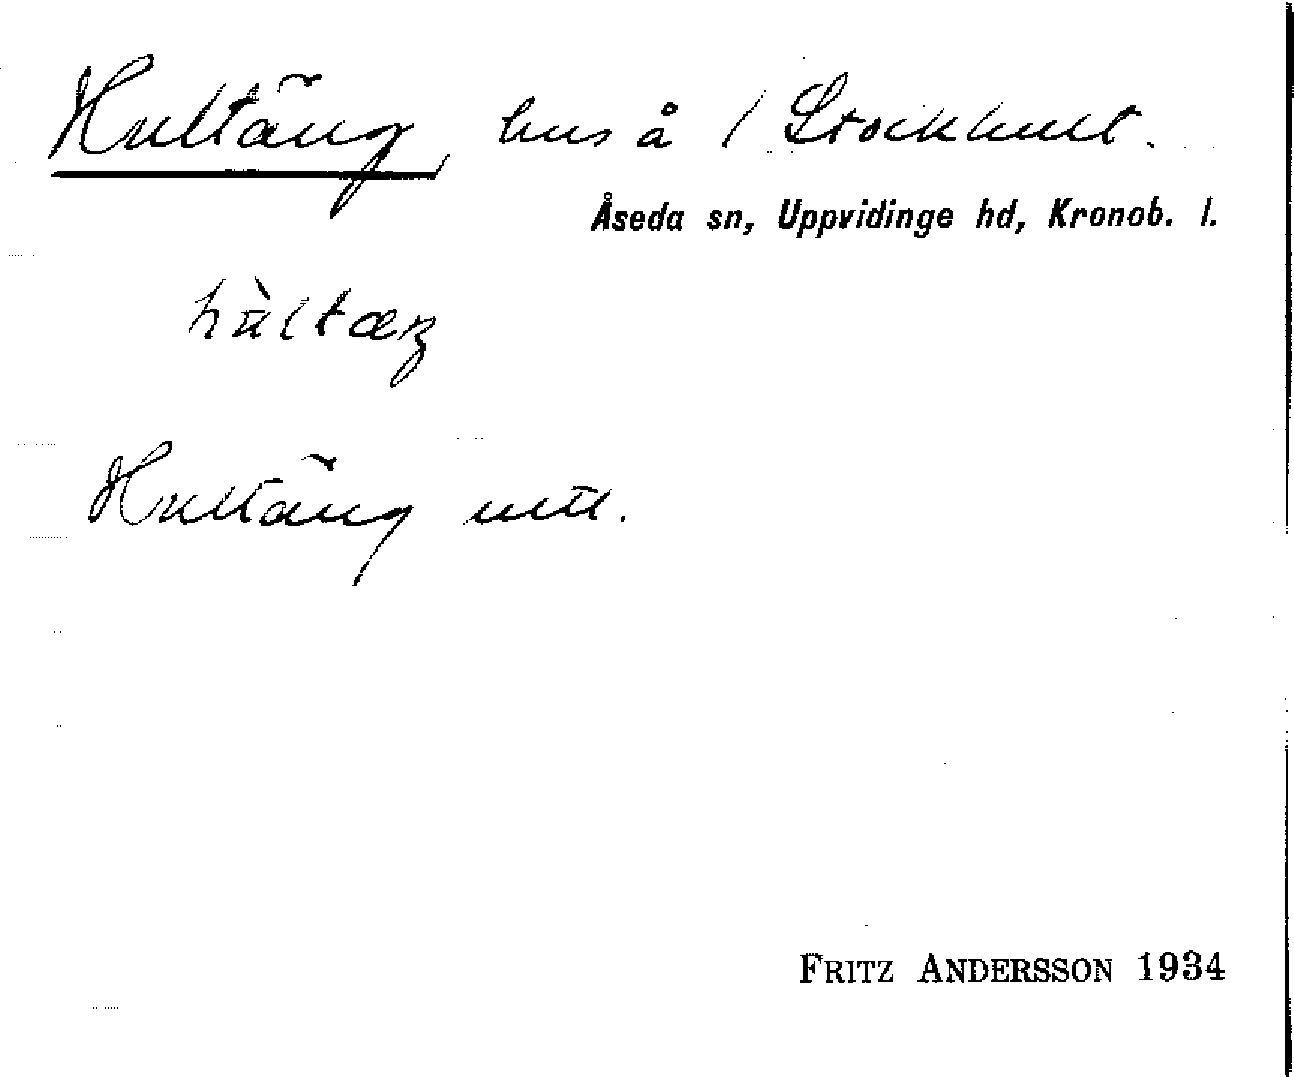 Hultäng, hus å 1 Stockhult.
Åseda sn, Uppvidinge hd, Kronob. l.
hùltæŋ
Hultäng
FRITZ ANDERSSON 1934